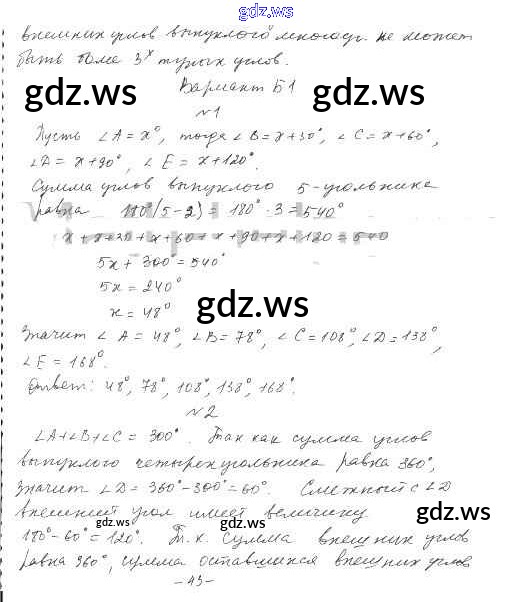 gdz.ws
внешних углов выпуклого многоуг. не может
быть более 3х тупых углов.
gdz.ws gdz.ws
Вариант Б1
№1
Пусть ∠A = x°, тогда ∠B = x+30°, ∠C = x+60°,
∠D = x+90°, ∠E = x+120°.
Сумма углов выпуклого 5-угольника
равна 180°(5-2) = 180°·3 = 540°
x + x+30 + x+60 + x+90 + x+120 = 540
5x + 300° = 540°
5x = 240°
x = 48°
gdz.ws
Значит ∠A = 48°, ∠B = 78°, ∠C = 108°, ∠D = 138°,
∠E = 168°.
Ответ: 48°, 78°, 108°, 138°, 168°.
№2
∠A+∠B+∠C = 300°. Так как сумма углов
выпуклого четырехугольника равна 360°,
значит ∠D = 360°-300° = 60°. Смежный с ∠D
внешний угол имеет величину
gdz.ws gdz.ws gdz.ws
180°-60° = 120°. Т.к. сумма внешних углов
равна 360°, сумма оставшихся внешних углов
-43-
gdz.ws